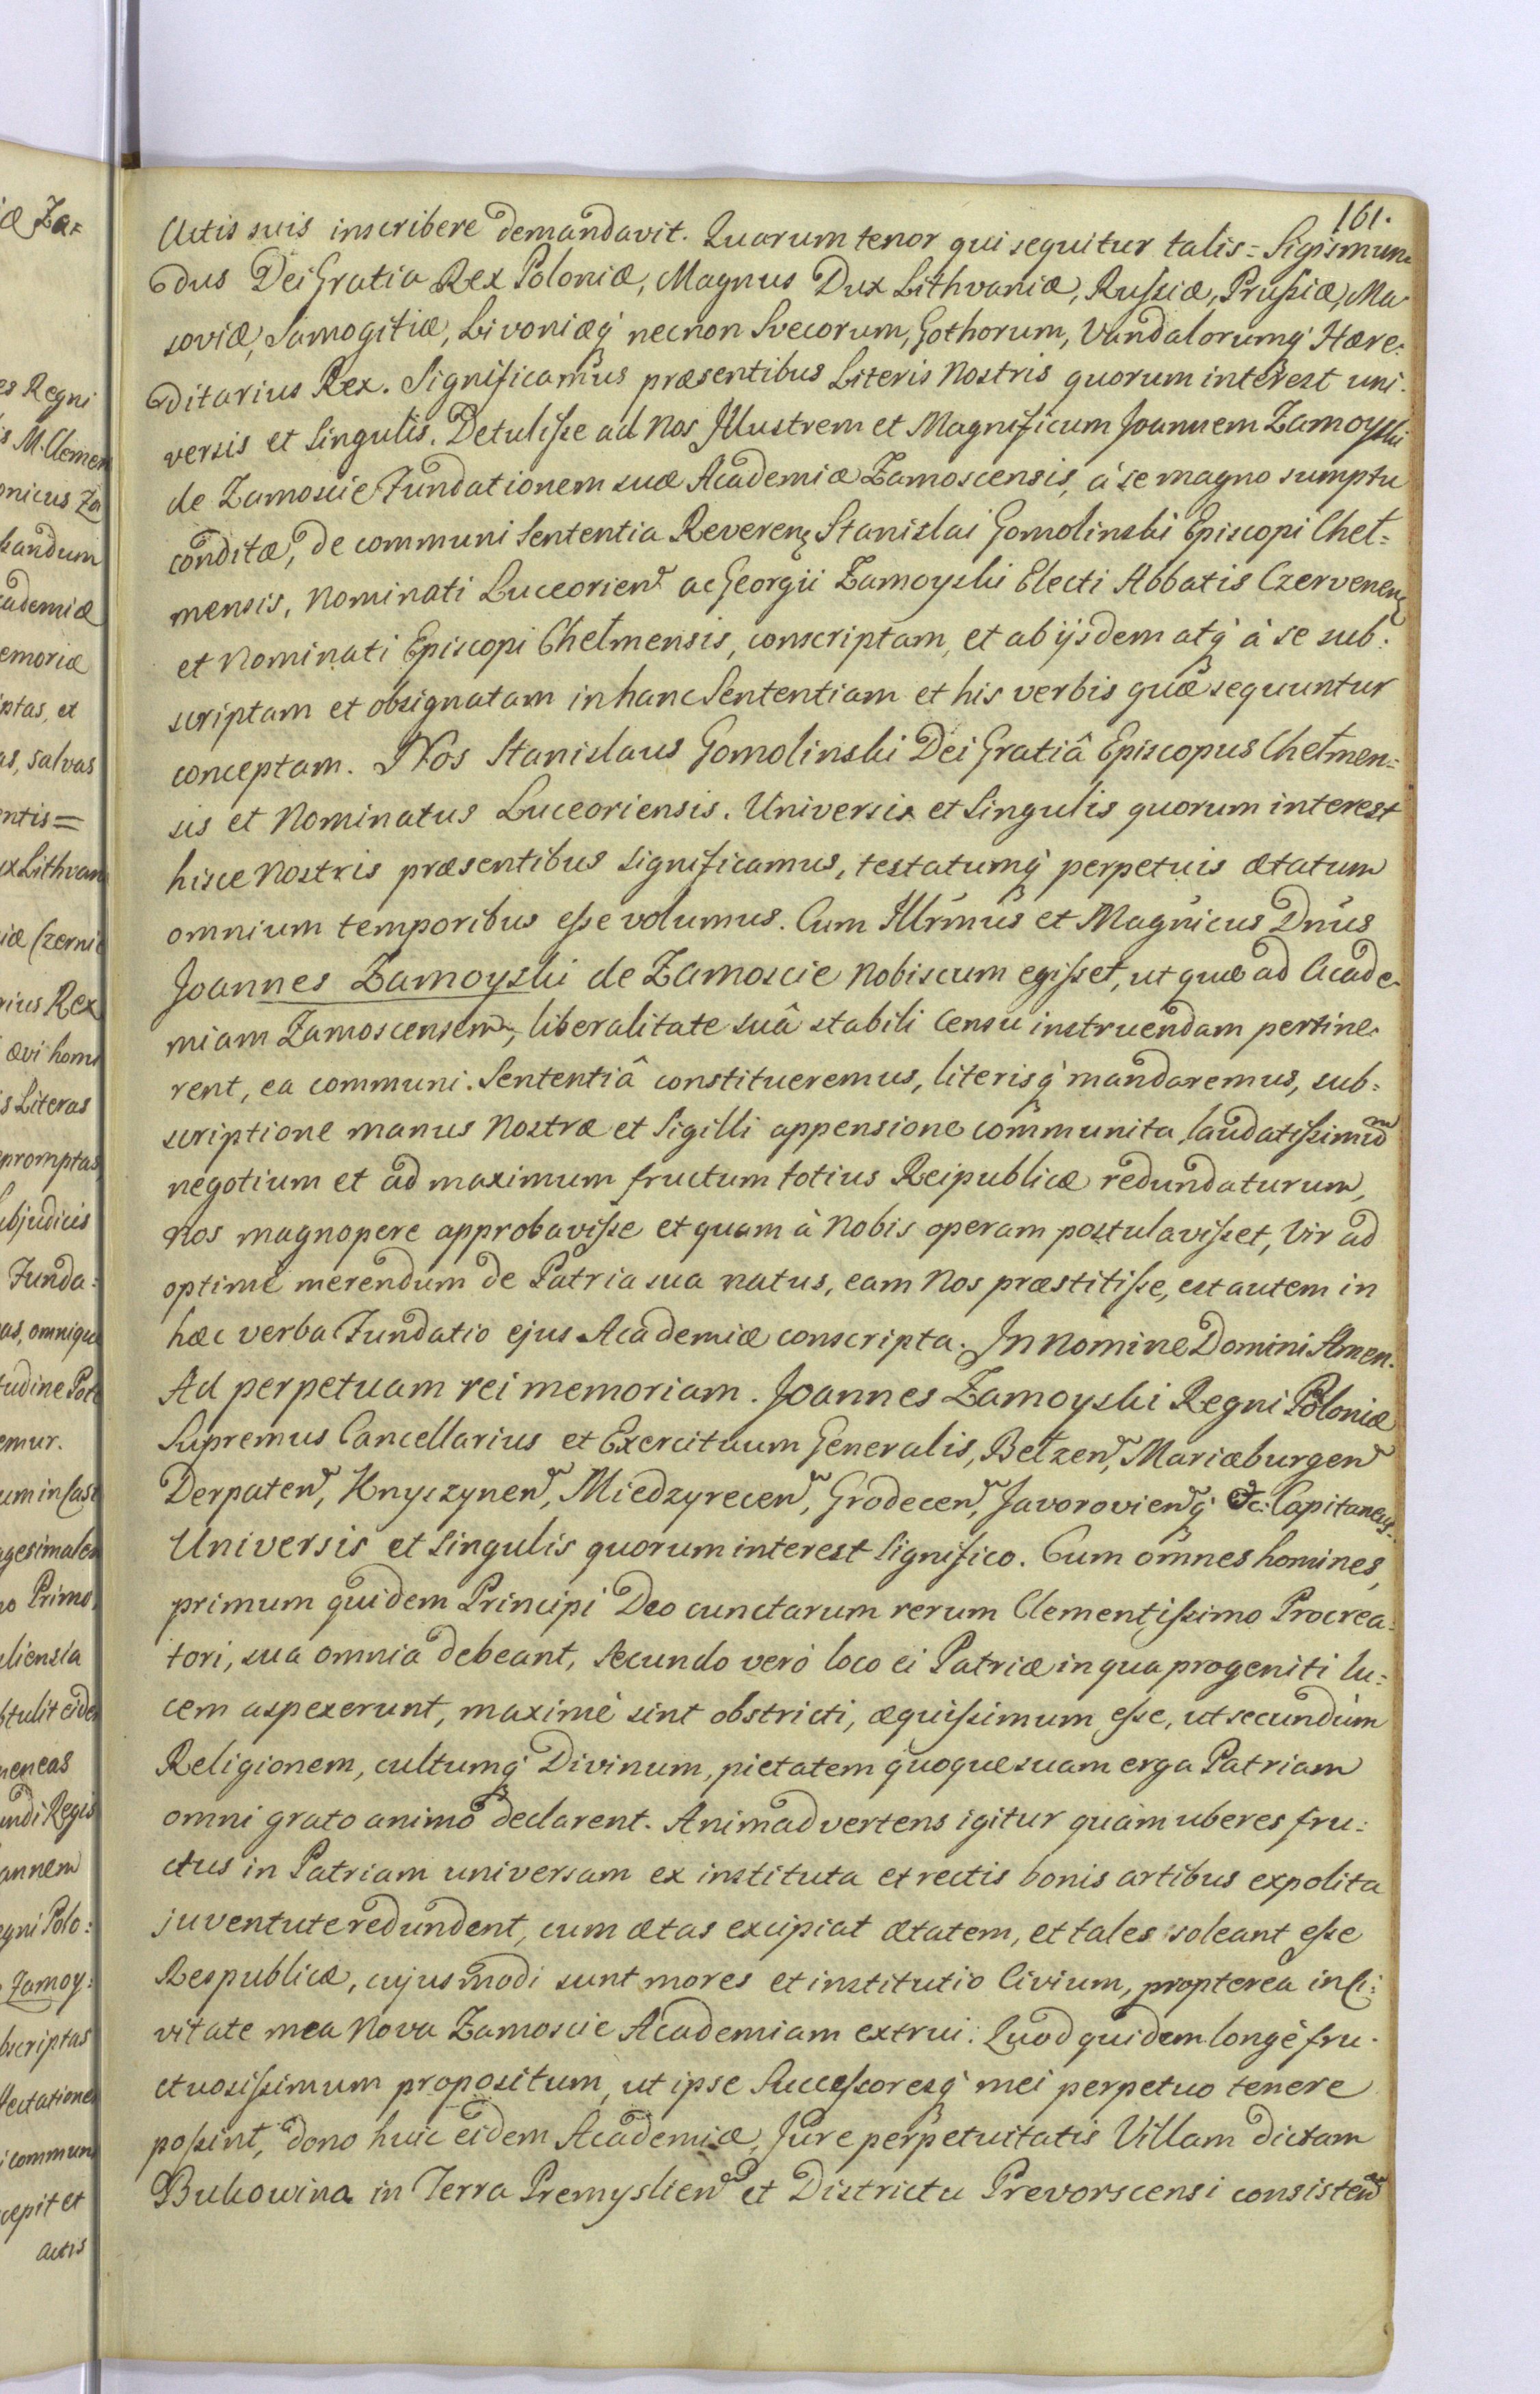 161.
Actis suis inscribere demandavit. Quarum tenor qui sequitur talis = Sigismun=
dus Dei Gratia Rex Poloniæ, Magnus Dux Lithvaniæ, Rußiæ, Prußiæ, Ma
soviæ, Samogitiæ, Livoniæq́ necnon Svecorum, Gothorum, Vandalorumq́ Hære=
ditarius Rex. Significamus præsentibus Literis Nostris quorum interest uni=
versis et Singulis. Detuliße ad Nos Jllustrem et Magnificum Joannem Zamoyski
de Zamoscie Fundationem suæ Academiæ Zamoscensis, à se magno sumptu
conditæ, de communi Sententia Reverenꝫ Stanislai Gomolinski Episcopi Cheł=
mensis, Nominati Luceorien̄ ac Georgii Zamoyski Electi Abbatis Czervenenꝫ
et Nominati Episcopi Chełmensis, conscriptam, et ab ijsdem atq́ à se sub=
scriptam et obsignatam in hanc Sententiam et his verbis quæ sequuntur
conceptam. Nos Stanislaus Gomolinski Dei Gratiâ Episcopus Chełmen=
sis et Nominatus Luceoriensis. Universis et Singulis quorum interest
hisce Nostris præsentibus significamus, testatumq́ perpetuis ætatum
omnium temporibus eße volumus. Cum Jllr̃mus et Magn̄icus Dn̄us
Joannes Zamoyski de Zamoscie Nobiscum egißet, ut quæ ad Acade=
miam Zamoscensem, liberalitate suâ stabili Censu instruendam pertine=
rent, ea communi Sententiâ constitueremus, literisq́ mandaremus, sub=
scriptione manus Nostræ et Sigilli appensione communita, laudatißimum
negotium et ad maximum fructum totius Reipublicæ redundaturum,
Nos magnopere approbaviße et quam à Nobis operam postulavißet, Vir ad
optimè merendum de Patria sua natus, eam Nos præstitiße, est autem in
hæc verba Fundatio ejus Academiæ conscripta. Jn Nomine Domini Amen.
Ad perpetuam rei memoriam. Joannes Zamoyski Regni Poloniæ
Supremus Cancellarius et Exercituum Generalis, Bełzen̄, Mariæburgen̄
Derpaten̄, Knyszynen̄, Miedzyrecen̄, Grodecen̄, Javorovien̄q́ &c: Capitaneus.
Universis et Singulis quorum interest Significo. Cum omnes homines,
primum quidem Principi Deo cunctarum rerum Clementißimo Procrea=
tori, sua omnia debeant, secundo verò loco ei Patriæ in qua progeniti lu=
cem aspexerunt, maximè sint obstricti, æquißimum eße, ut secundùm
Religionem, cultumq́ Divinum, pietatem quoque suam erga Patriam
omni grato animo declarent. Animadvertens igitur quàm uberes fru=
ctus in Patriam universam ex instituta et rectis bonis artibus expolita
juventute redundent, cum ætas excipiat ætatem, et tales soleant eße
Respublicæ, cujusmodi sunt mores et institutio Civium, propterea in Ci=
vitate mea Nova Zamoscie Academiam extrui. Quod quidem longè fru=
ctuosißimum propositum, ut ipse Succeßoresq́ mei perpetuo tenere
poßint, dono huic eidem Academiæ, Jure perpetuitatis Villam dictam
Bukowina in Terra Premyslien̄ et Districtu Prevorscensi consisten̄